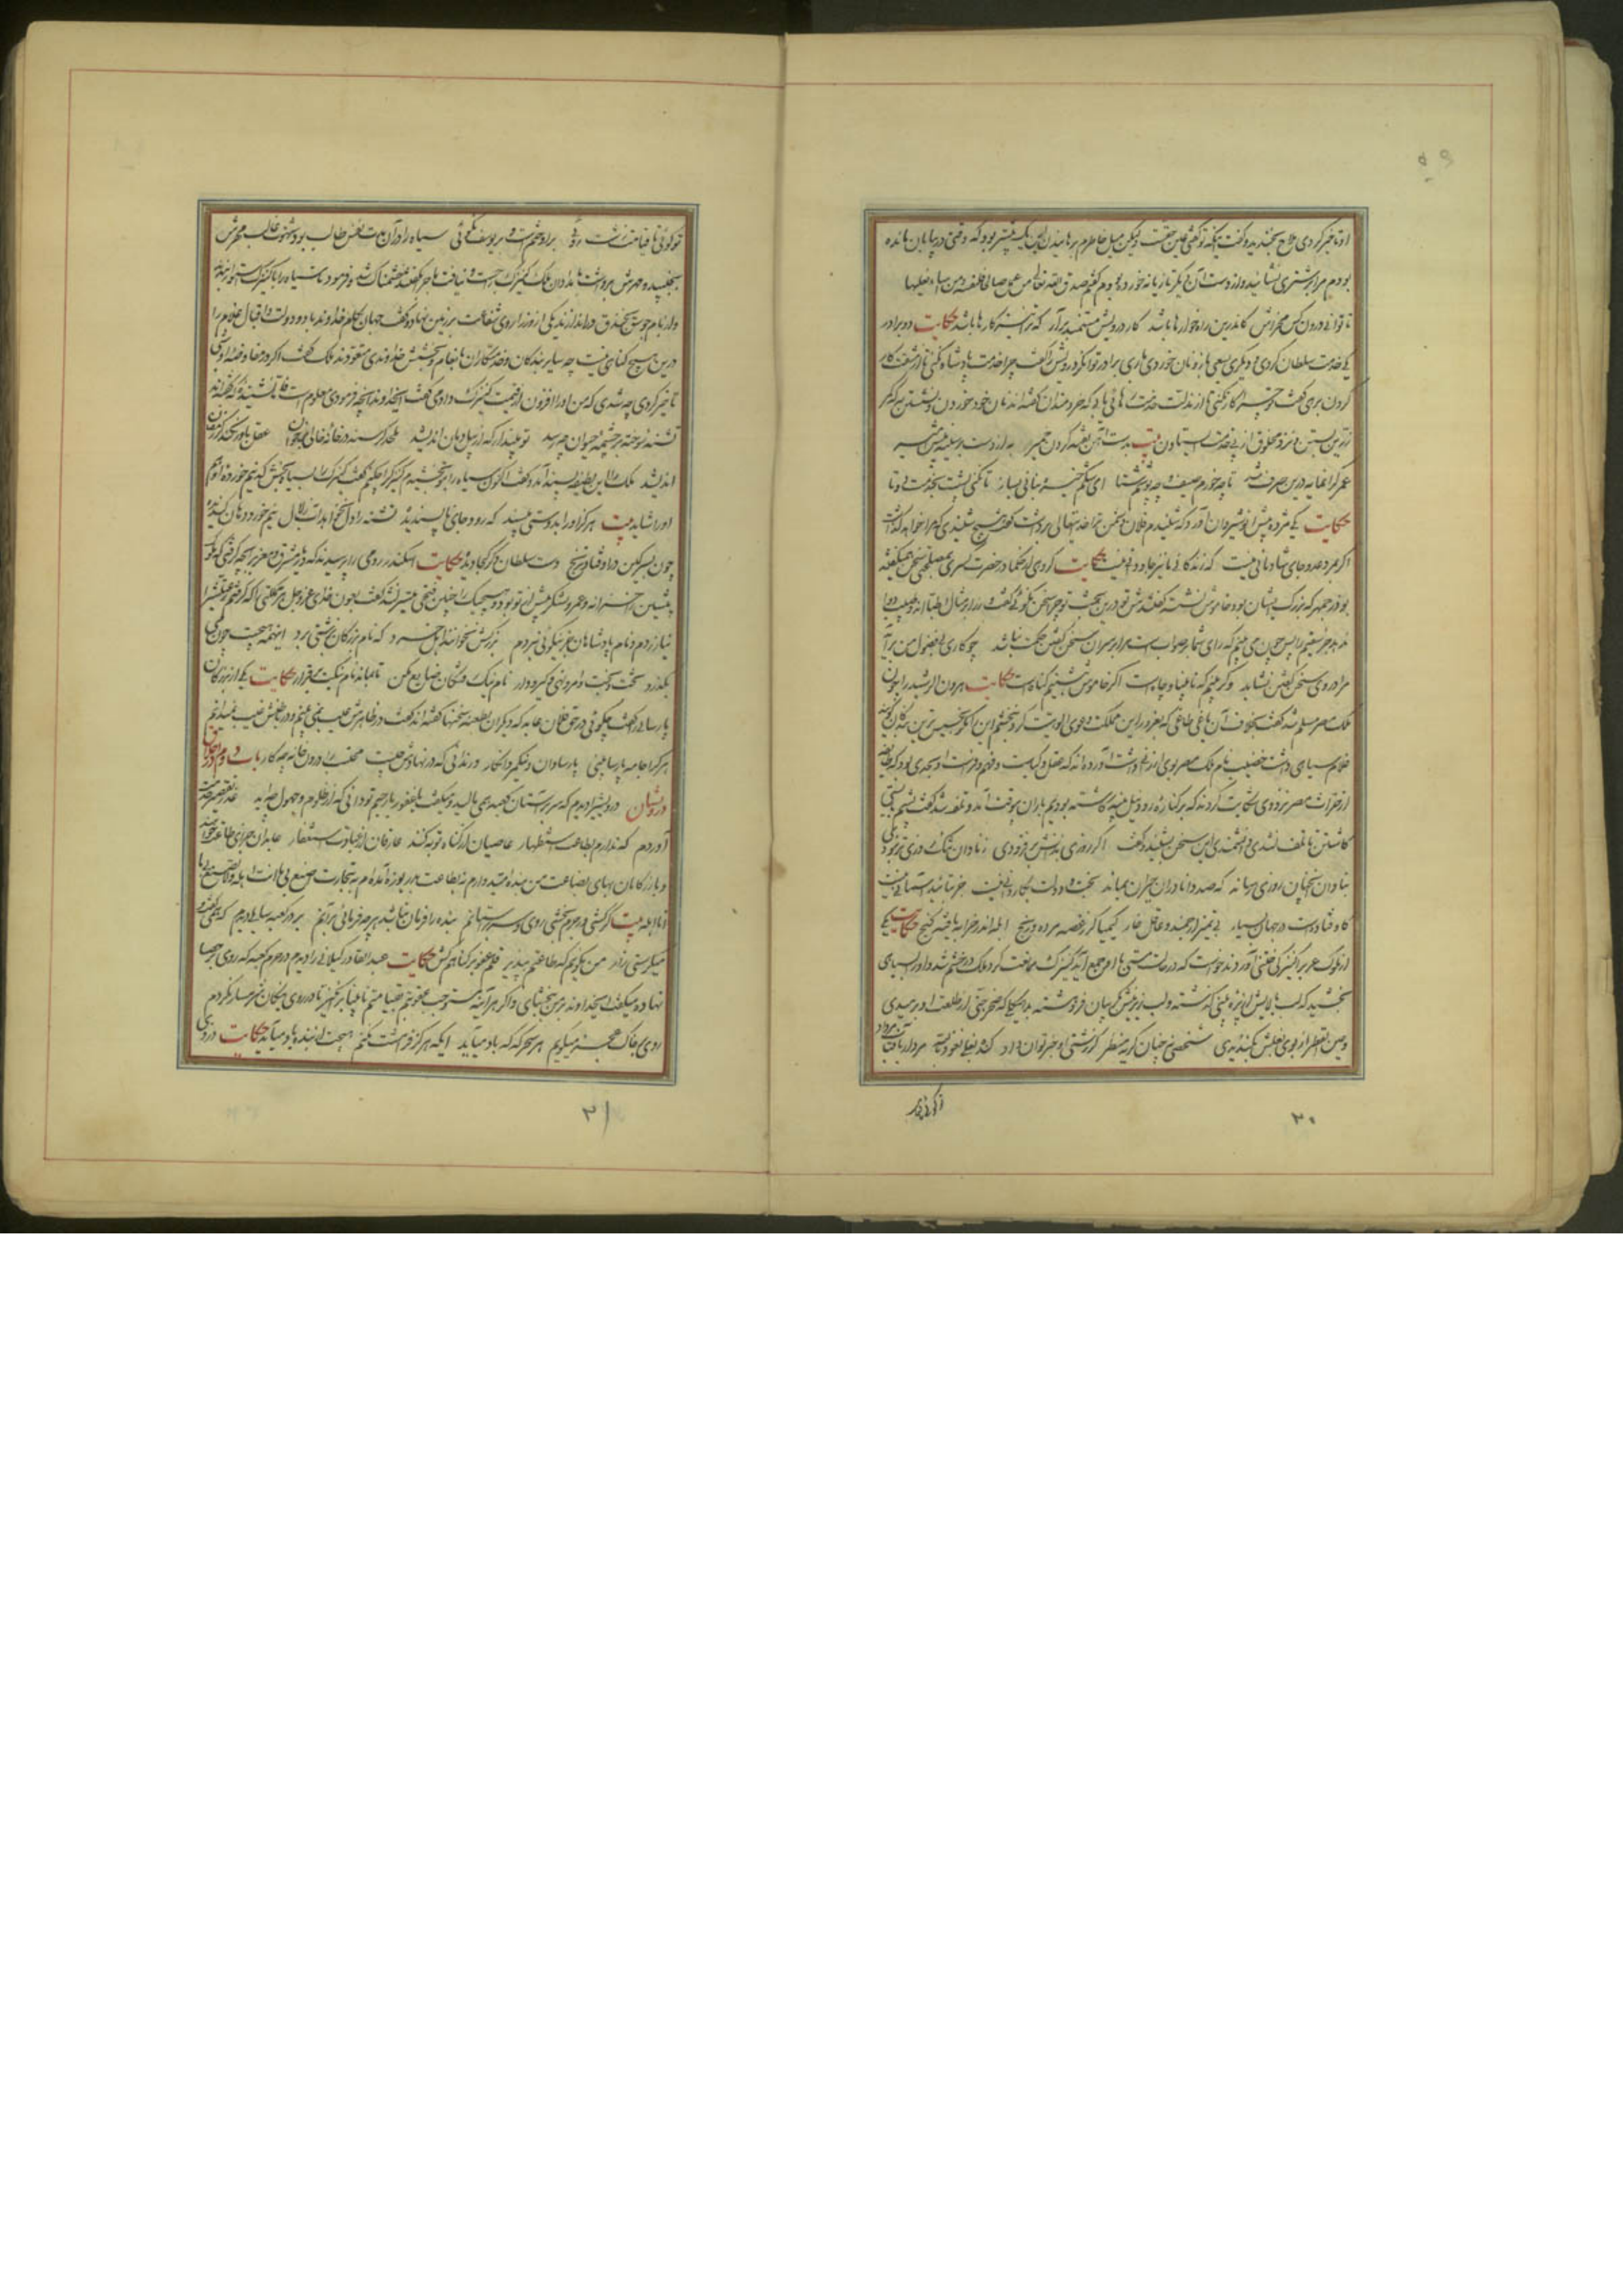 او تاخیر کردی ملاح بخندید و گفت آنچه تو گفتی یقین حقست و لیکن میل خاطرم برهانیدن این یک بیشتر بود که وقتی در بیابان مانده
بودم مرا بر شتری نشانید و از دست آن دیگر تازیانه خورده بودم گفتم صدق الله تعالی من عمل صالحا فلنفسه و من اساء فعلیها
تا توانی درون کس مخراش کاندرین راه خارها باشد کار درویش مستمند برآر که ترا نیز کارها باشد حکایت دو برادر
یکی خدمت سلطان کردی و دیگری بسعی بازو نان خوردی باری برادر توانگر درویش را گفت چرا خدمت پادشاه نکنی تا از مشقت کار
کردن برهی گفت تو چرا کار نکنی تا از مذلت خدمت رهائی یابی که خردمندان گفته‌اند نان خود خوردن و نشستن به که کمر
زرین بستن و نزد مخلوق از پی خدمت ایستادن بیت بدست آهن تفته کردن خمیر به از دست بر سینه پیش امیر
عمر گرانمایه درین صرف شد تا چه خورم صیف و چه پوشم شتا ای شکم خیره بنانی بساز تا نکنی پشت بخدمت دوتا
حکایت یکی مژده پیش انوشیروان آورد که شنیدم فلان دشمن ترا خدایتعالی برداشت گفت هیچ شنیدی که مرا خواهد گذاشت
اگر بمرد عدو جای شادمانی نیست که زندگانی ما نیز جاودانی نیست حکایت گروهی از حکما در حضرت کسری بمصلحتی سخن همیگفتند
بوذرجمهر که بزرگ ایشان بود خاموش نشسته گفتندش تو درین بحث چرا سخن نگوئی گفت وزرا بر مثال اطبااند و طبیب دوا
ندهد جز سقیم را پس چون می بینم که رای شما بر صواب است مرا بر سر آن سخن گفتن حکمت نباشد چو کاری بی فضول من برآید
مرا در وی سخن گفتن نشاید وگر بینم که نابینا و چاه است اگر خاموش بنشینم گناه است حکایت هرون الرشید را چون
ملک مصر مسلم شد گفت بخلاف آن باغی طاغی که بغرور این مملکت دعوی الوهیت کرد نبخشم این را مگر بخسیس ترین بندگان گویند
غلام سیاهی داشت خضیب نام ملک مصر بوی ارزانی داشت آورده‌اند که عقل و کیاست و فهم و فراست او بحدی بود که طایفه
از حراث مصر نزد وی شکایت کردند که بر کناره رود نیل پنبه کاشته بودیم باران بیوقت آمد و تلف شد گفت پشم بایستی
کاشتن تا تلف نشدی دانشمندی این سخن بشنید و گفت اگر روزی بدانش بر فزودی ز نادان تنگ روزی تر نبودی
بنادان آنچنان روزی رساند که صد دانا در آن حیران بماند بخت و دولت بکاردانی نیست جز بتایید آسمانی نیست
که اوفتادست در جهان بسیار بی تمیز ارجمند و عاقل خار کیمیاگر ز غصه مرده و رنج ابله اندر خرابه یافته گنج حکایت یکی
از ملوک عرب را کنیزکی ختنی آوردند خواست که در حالت مستی با او جمع آید کنیزک ممانعت کرد ملک در خشم شد و او را بسیاهی
بخشید که لب بالایش از پره بینی گذشته و لب زیرینش بگریبان فروهشته بدهیکلی که صخر جنی از طلعت او برمیدی
و عین القطر از بوی بغلش بگندیدی شخصی نه چنان کریه منظر کز زشتی او خبر توان داد کند بغلی نعوذ بالله مردار بآفتاب مرداد
تو گوئی تا
۳۰
تو گوئی تا قیامت زشت روئی برو ختم است و بر یوسف نکوئی سیاه را در آن مدت نفس طالب بود و شهوت غالب مهرش
بجنبید و مهرش برداشت بامدادان ملک کنیزک را جست و نیافت ماجرا بگفتند خشمناک شد و فرمود تا سیاه را با کنیزک استوار ببندند
و از بام جوسق بخندق دراندازند یکی از وزرا روی شفاعت بر زمین نهاد و گفت جهان بکام خداوند باد و دولت و اقبال غلام را
درین هیچ گناهی نیست چه سایر بندگان و خدمتکاران بانعام و بخشش خداوندی متعودند ملک گفت اگر در مفاوضه او شبی
تاخیر کردی چه شدی که من او را افزون از قیمت کنیزک دادمی گفت ای خداوند آنچه فرمودی معلوم است فاما نشنیده که گفته‌اند
تشنه سوخته بر چشمه حیوان چو رسد تو مپندار که از پیل دمان اندیشد ملحد گرسنه در خانه خالی بر خوان عقل باور نکند کز رمضان
اندیشد ملک را این لطیفه پسند آمد و گفت اکنون سیاه را بتو بخشیدم کنیزک را چکنم گفت کنیزک را بسیاه بخش که نیم خورده او هم
او را شاید بیت هرگز او را بدوستی مپسند که رود جای ناپسندیده تشنه را دل نخواهد آب زلال نیم خورد دهان گندیده
چون بسرگین در اوفتد نارنج دست سلطان دگر کجا بیند حکایت اسکندر رومی را پرسیدند که دیار مشرق و مغرب بچه گرفتی که ملوک
پیشین را خزانه و عمر و لشکر بیش از تو بود و هیچیک را چنین فتحی میسر نشد گفت بعون خدای عزوجل هر مملکتی را که گرفتم رعیتش را
نیازردم و نام پادشاهان جز بنیکوئی نبردم بزرگش نخوانند اهل خرد که نام بزرگان بزشتی برد اینهمه هیچست چون می
بگذرد تخت و بخت و امر و نهی و گیر و دار نام نیک رفتگان ضایع مکن تا بماند نام نیکت برقرار حکایت یکی از بزرگان
پارسائی را گفت چگوئی در حق فلان عابد که دیگران بطعنه سخنها گفته‌اند گفت در ظاهرش عیب نمی بینم و در باطنش غیب نمیدانم
هر کرا جامه پارسا بینی پارسا دان و نیکمرد انگار ور ندانی که در نهادش چیست محتسب را درون خانه چه کار باب دوم در اخلاق
درویشان درویشی را دیدم که سر بر آستان کعبه همی مالید و میگفت یا غفور یا رحیم تو دانی که از ظلوم و جهول چه آید عذر تقصیر خدمت
آوردم که ندارم بطاعت استظهار عاصیان از گناه توبه کنند عارفان از عبادت استغفار عابدان جزای طاعت خواهند
و بازرگانان بهای بضاعت من بنده امید دارم نه طاعت بدریوزه آمده‌ام نه بتجارت اصنع بی ما انت اهله و لا تصنع بی ما
انا اهله بیت گر کشی ور جرم بخشی روی و سر بر آستانم بنده را فرمان نباشد هر چه فرمائی برآنم بر در کعبه سایلی دیدم که همی گفت و
میگرستی زار من نگویم که طاعتم بپذیر قلم عفو بر گناهم کش حکایت عبدالقادر گیلانی را دیدم در حرم کعبه که روی بر حصبا
نهاده میگفت ای خداوند بر من ببخشای و اگر هر آینه مستوجب عقوبتم بقیامتم نابینا برانگیز تا در روی نیکان شرمسار نگردم
روی بر خاک عجز میگویم هر سحرگه که باد میآید ایکه هرگز فرامشت نکنم هیچت از بنده یاد میآید حکایت دزدی
۳۱